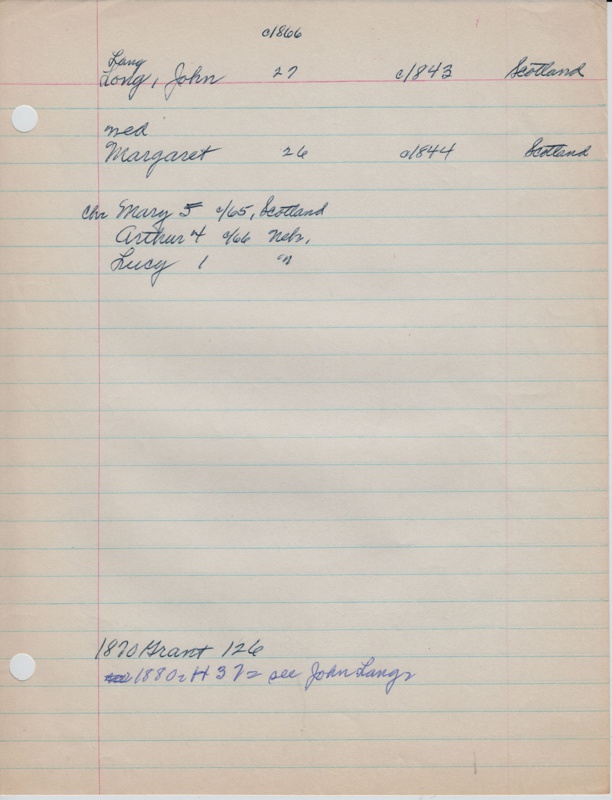 c/1866
Lang
Long, John 27 c/1843 Scotland
med
Margaret 26 c/1844 Scotland
chr Mary 5 c/65, Scotland
Arthur 4 c/66 Nebr,
Lucy 1 "
1870 Grant 126
1880 = H 37 = see John Lang